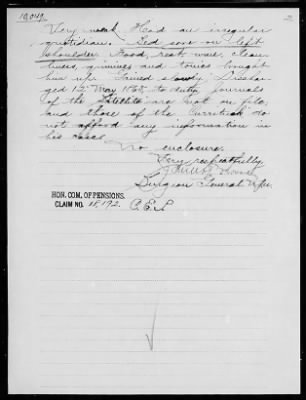 19049
2
Very weak Had an irregular
quotidian. Bed sore on left
shoulder. Food, rest ware, clean-
liness, quinines and tonics brought
him up. Gained slowly. Dischar-
ged 12 May 1865, to duty. Journals
of the Satellite are not on file,
and those of the Currituck do
not afford any information in
his case.
No enclosure.
Very respectfully,
Surgeon General
HON. COM. OF PENSIONS.
CLAIM NO. 18,192. C.E.L